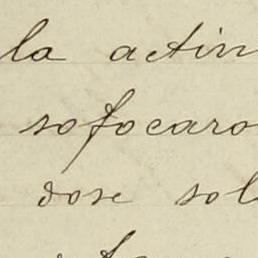 la actin
sofocaro
dose sol